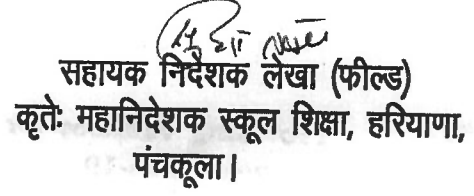 सहायक निदेशक लेखा (फील्ड)
कृतेः महानिदेशक स्कूल शिक्षा, हरियाणा,
पंचकूला।